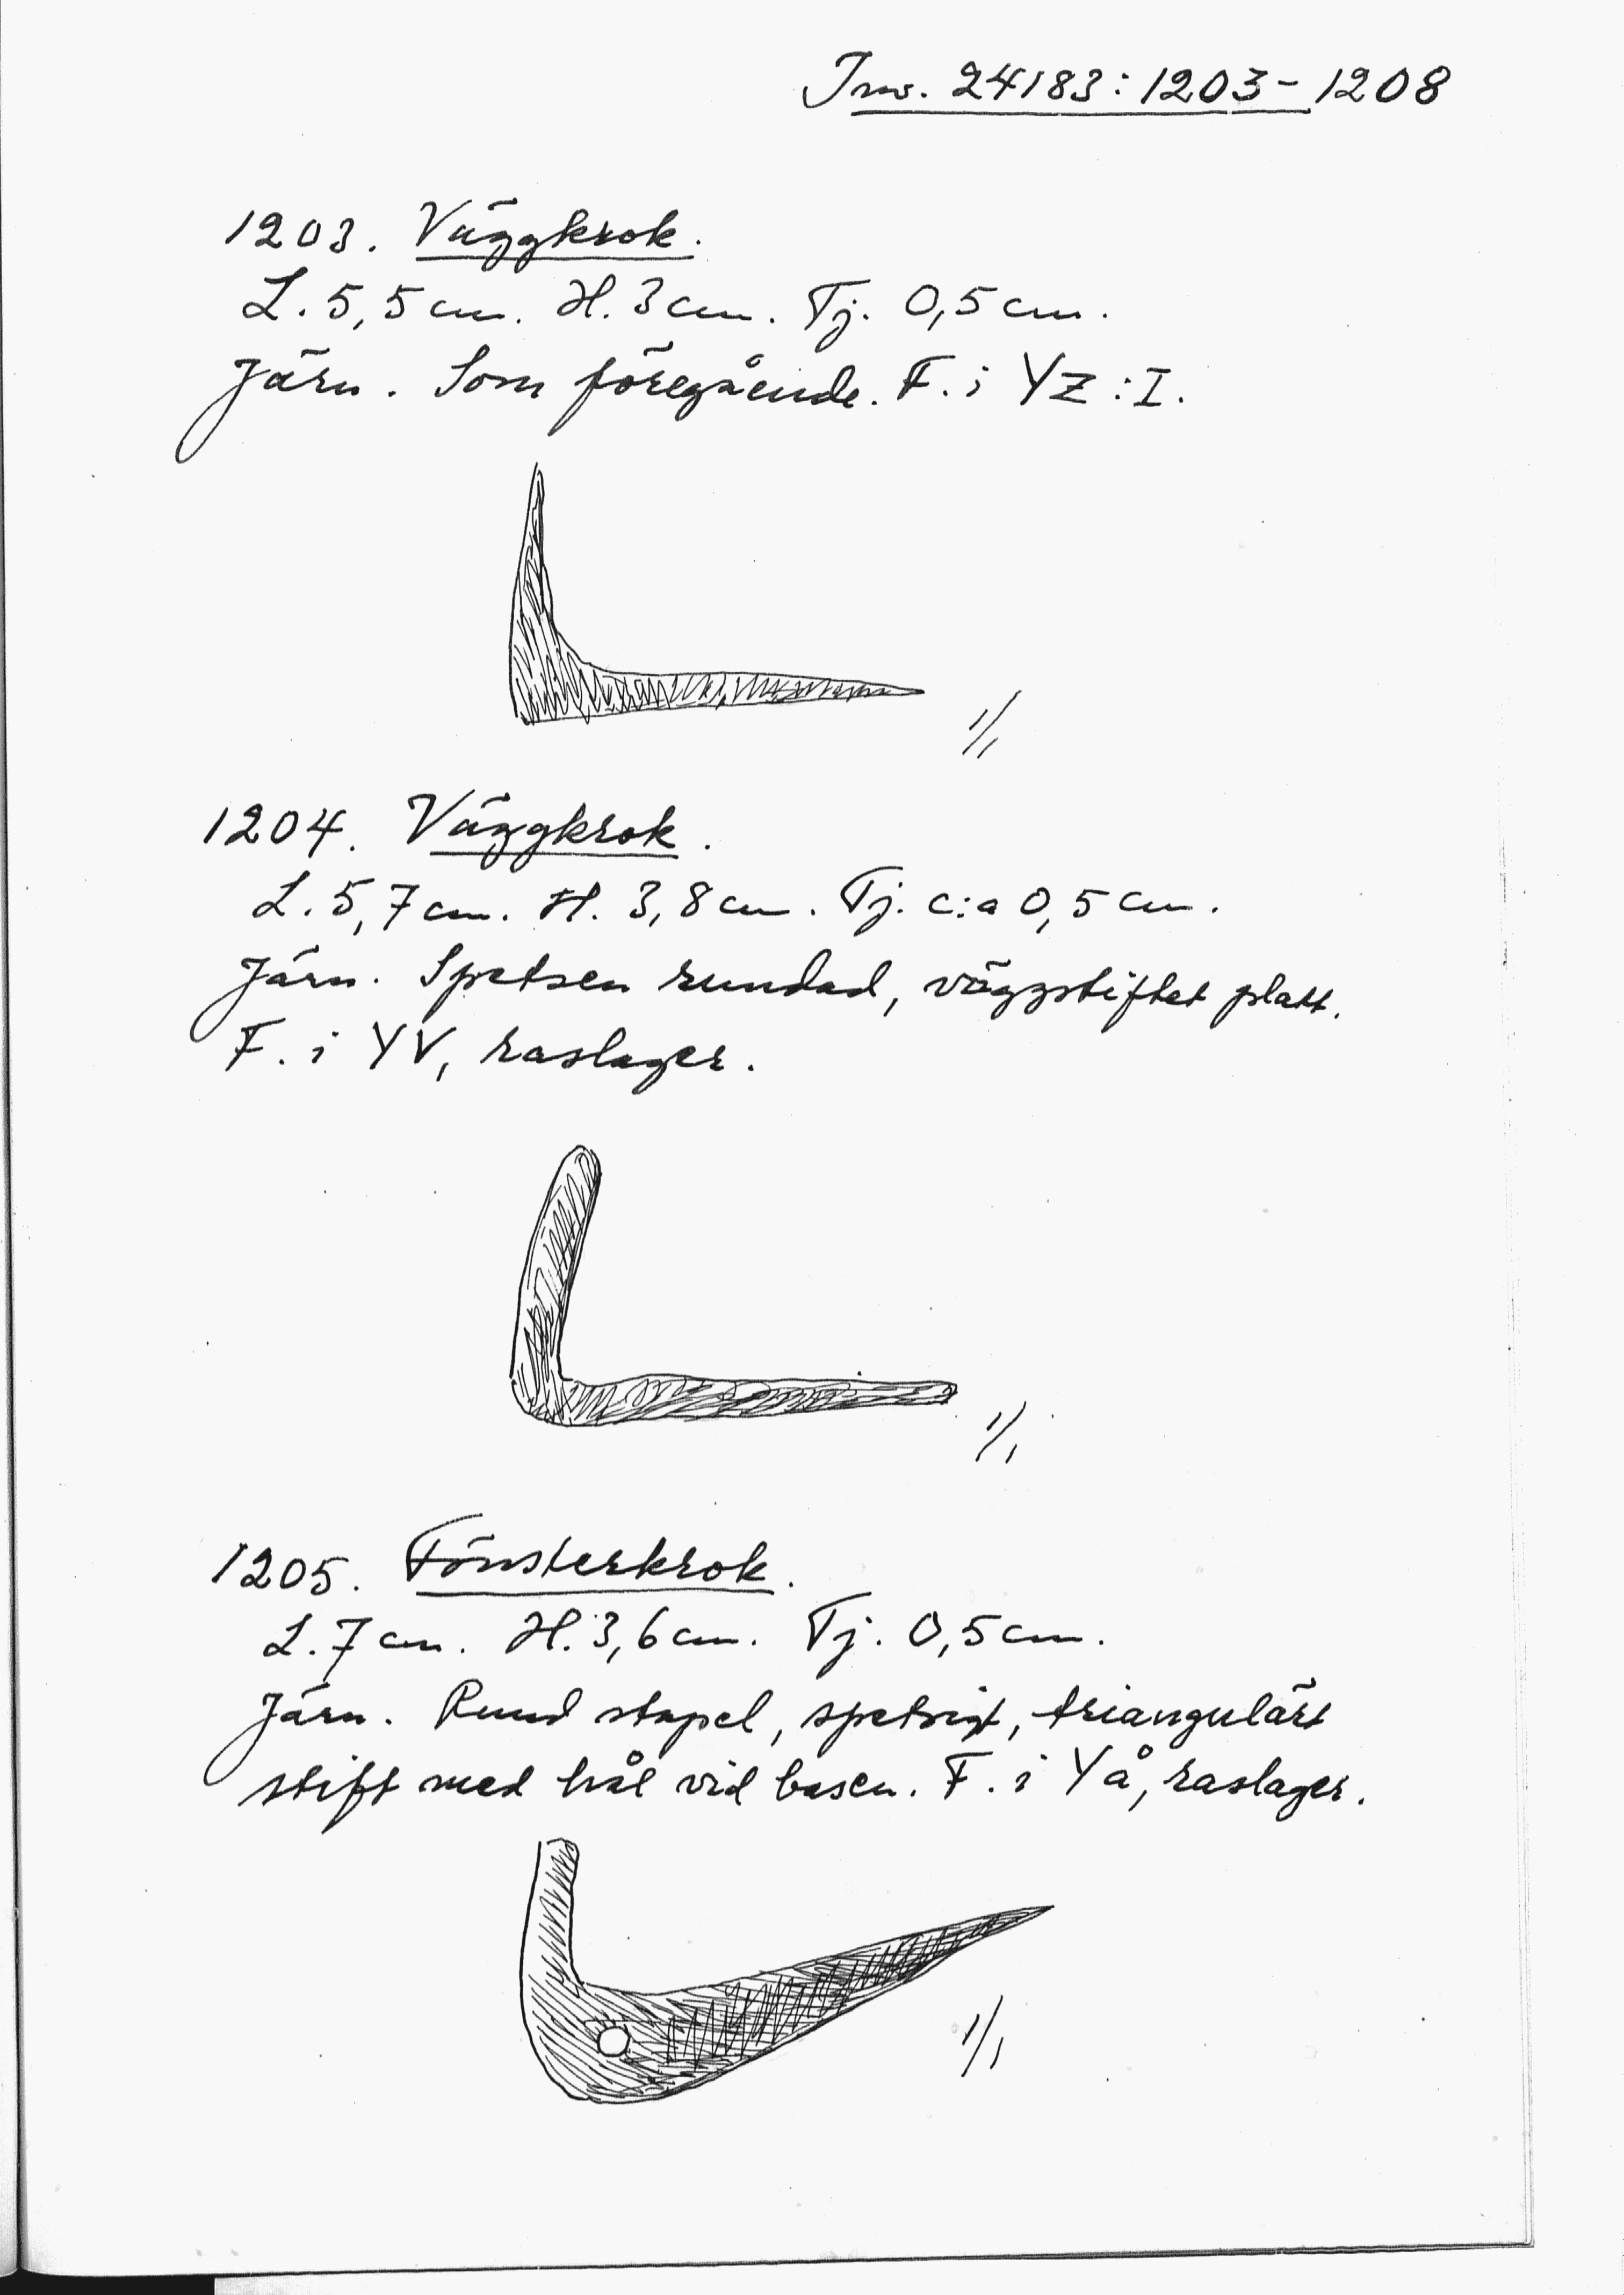 Inv. 24183:1203-1208
1203. Väggkrok.
L. 5,5 cm. H. 3 cm. Tj. 0,5 cm.
Järn. Som föregående. F. i YZ:I.
1/1
1204. Väggkrok.
L. 5,7 cm. H. 3,8 cm. Tj. c:a 0,5 cm.
Järn. Spetsen rundad, väggstiftet platt.
F. i YV, raslager.
1/1
1205. Fönsterkrok.
L. 7 cm. H. 3,6 cm. Tj. 0,5 cm.
Järn. Rund stapel, spetsigt, triangulärt
stift med hål vid basen. F. i YÅ, raslager.
1/1